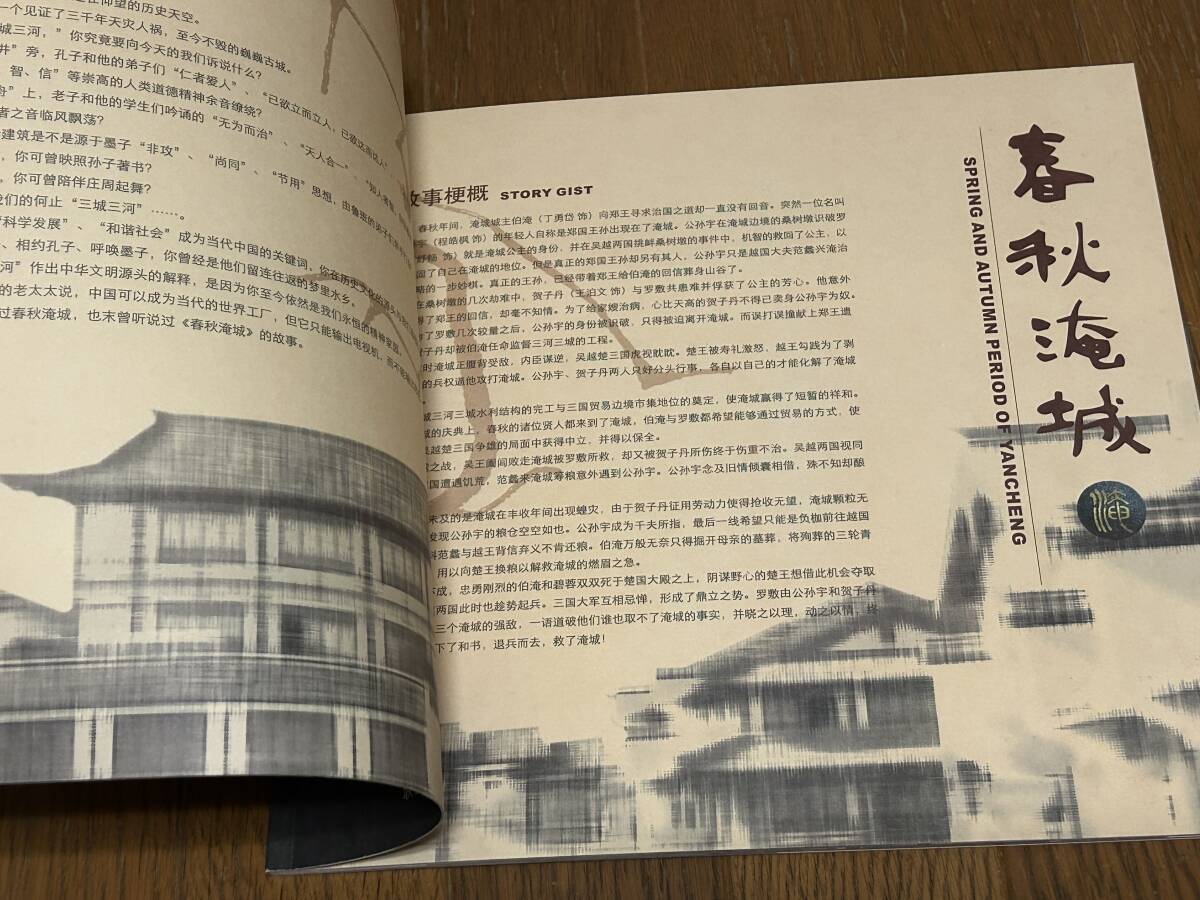 仰望的历史天空。
一个见证了三千年天灾人祸，至今不毁的巍巍古城。
城三河，”你究竟要向今天的我们诉说什么？
井”旁，孔子和他的弟子们“仁者爱人”、“己欲立而立人，己欲达而达人”
智、信”等崇高的人类道德精神余音缭绕？
舟”上，老子和他的学生们吟诵的“无为而治”、“天人合一”、
者之音临风飘荡？
建筑是不是源于墨子“非攻”、“尚同”、“节用”思想，由鲁班的弟子们
，你可曾映照孙子著书？
，你可曾陪伴庄周起舞？
我们的何止“三城三河”……。
“科学发展”、“和谐社会”成为当代中国的关键词，你在历史文化的源头
、相约孔子、呼唤墨子，你曾经是他们留连往返的梦里水乡。
河”作出中华文明源头的解释，是因为你至今依然是我们永恒的精神家园。
的老太太说，中国可以成为当代的世界工厂，但它只能输出电视机，而不能
过春秋淹城，也末曾听说过《春秋淹城》的故事。
故事梗概 STORY GIST
春秋年间，淹城城主伯淹（丁勇岱 饰）向郑王寻求治国之道却一直没有回音。突然一位名叫
宇（程皓枫 饰）的年轻人自称是郑国王孙出现在了淹城。公孙宇在淹城边境的桑树墩识破罗
舒畅 饰）就是淹城公主的身份，并在吴越两国挑衅桑树墩的事件中，机智的救回了公主，以
固了自己在淹城的地位。但是真正的郑国王孙却另有其人，公孙宇只是越国大夫范蠡兴淹治
略的一步妙棋。真正的王孙，已经带着郑王给伯淹的回信葬身山谷了。
在桑树墩的几次劫难中，贺子丹（王泊文 饰）与罗敷共患难并俘获了公主的芳心。他意外
得了郑王的回信，却毫不知情。为了给家嫂治病，心比天高的贺子丹不得已卖身公孙宇为奴。
了罗敷几次较量之后，公孙宇的身份被识破，只得被迫离开淹城。而误打误撞献上郑王遗
贺子丹却被伯淹任命监督三河三城的工程。
时淹城正腹背受敌，内臣谋逆，吴越楚三国虎视眈眈。楚王被寿礼激怒，越王勾践为了剥
的兵权逼他攻打淹城。公孙宇、贺子丹两人只好分头行事，各自以自己的才能化解了淹城
。
城三河三城水利结构的完工与三国贸易边境市集地位的奠定，使淹城赢得了短暂的祥和。
城的庆典上，春秋的诸位贤人都来到了淹城，伯淹与罗敷都希望能够通过贸易的方式，使
吴越楚三国争雄的局面中获得中立，并得以保全。
之战，吴王阖闾败走淹城被罗敷所救，却又被贺子丹所伤终于伤重不治。吴越两国视同
国遭遇饥荒，范蠡来淹城筹粮意外遇到公孙宇。公孙宇念及旧情倾囊相借，殊不知却酿
未及的是淹城在丰收年间出现蝗灾，由于贺子丹征用劳动力使得抢收无望，淹城颗粒无
发现公孙宇的粮仓空空如也。公孙宇成为千夫所指，最后一线希望只能是负枷前往越国
料范蠡与越王背信弃义不肯还粮。伯淹万般无奈只得掘开母亲的墓葬，将殉葬的三轮青
，用以向楚王换粮以解救淹城的燃眉之急。
不成，忠勇刚烈的伯淹和碧蓉双双死于楚国大殿之上，阴谋野心的楚王想借此机会夺取
两国此时也趁势起兵。三国大军互相忌惮，形成了鼎立之势。罗敷由公孙宇和贺子丹
三个淹城的强敌，一语道破他们谁也取不了淹城的事实，并晓之以理，动之以情，终
下了和书，退兵而去，救了淹城！
春秋淹城
SPRING AND AUTUMN PERIOD OF YANCHENG
淹